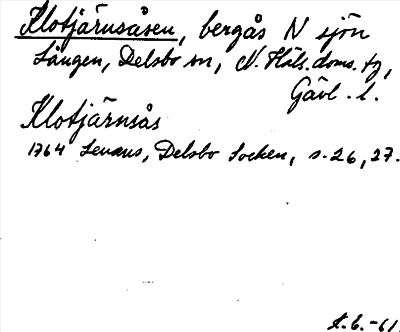 Klotjärnsåsen, bergås N sjön
Lången, Delsbo sn, N. Häls. doms. tg,
Gävl. l.
Klotjärnsås
1764 Lenæus, Delsbo Socken, s. 26, 27.
t. E. -61